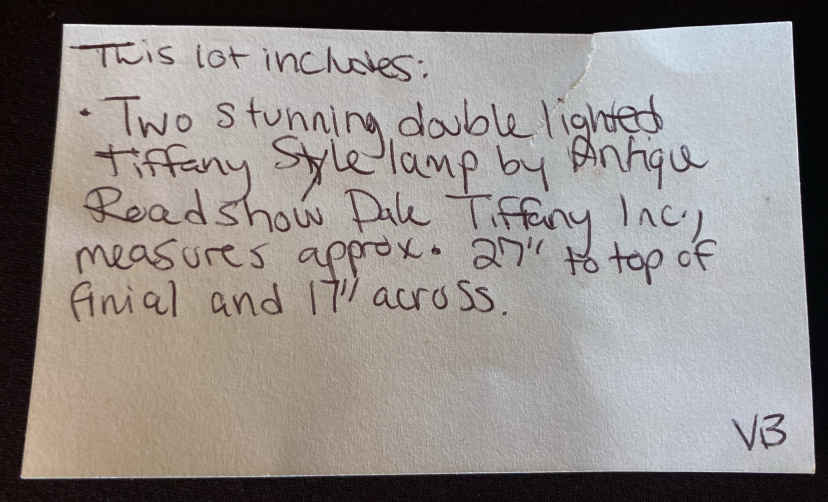 This lot includes:
• Two stunning double lighted
Tiffany Style lamp by Antique
Roadshow Dale Tiffany Inc.,
measures approx. 27" to top of
finial and 17" across.
VB